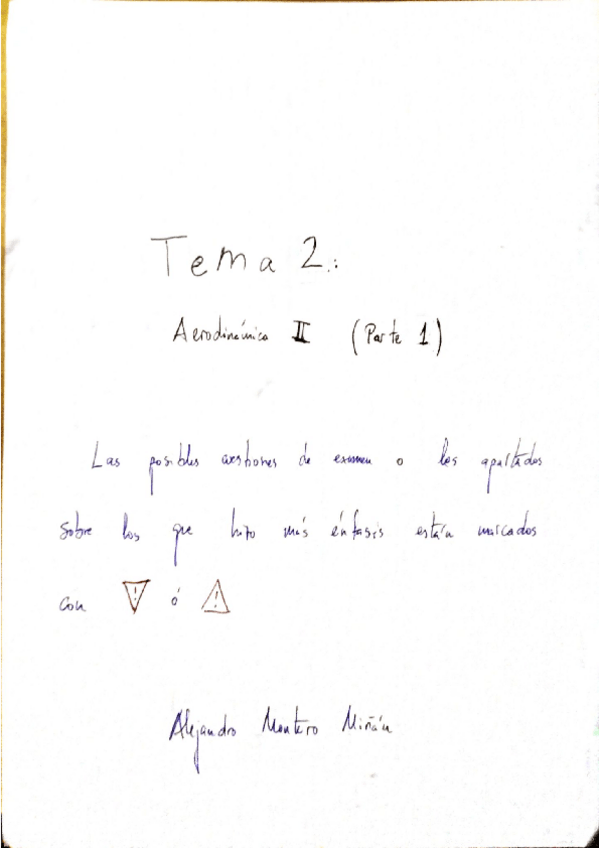 Tema 2.:
Aerodinámica II (Parte 1)
Las posibles cuestiones de examen o los apartados
sobre los que hizo más énfasis están marcados
con ! ó !
Alejandro Montero Miñán